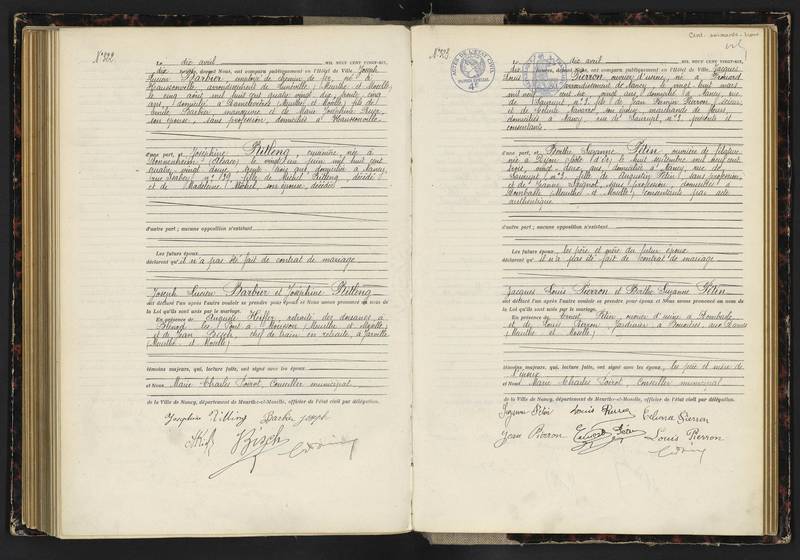 N° 322
Le dix avril MIL NEUF CENT VINGT-SIX,
dix heures, devant Nous, ont comparu publiquement en l'Hôtel de Ville, Joseph
Lucien Barbier, employé de chemin de fer, né à
Haussonville, arrondissement de Lunéville (Meurthe et Moselle)
le cinq août mil huit cent quatre vingt dix, trente cinq
ans, domicilié à (Meurthe et Moselle), fils de
Emile Barbier, manœuvre, et de Marie Joséphine
son épouse, sans profession, domiciliés à Haussonville.
d'une part, et Joséphine Ritleng, cuisinière, née à
(Alsace), le vingt un juin mil huit cent
quatre vingt douze, trente trois ans, domiciliée à Nancy,
rue n° 139, fille de Michel Ritleng, décédé
et de Madeleine Michel, son épouse, décédée
d'autre part ; aucune opposition n'existant
Les futurs époux
déclarent qu'il n'a pas été fait de contrat de mariage
Joseph Lucien Barbier et Joséphine Ritleng
ont déclaré l'un après l'autre vouloir se prendre pour époux et Nous avons prononcé au nom de
la Loi qu'ils sont unis par le mariage.
En présence de Auguste retraité des douanes à
Blénod les Pont à Mousson (Meurthe et Moselle)
et de Jean Bisch, chef de train en retraite, à Jarville
(Meurthe et Moselle)
témoins majeurs, qui, lecture faite, ont signé avec les époux
et Nous Marie Charles Conseiller municipal
de la Ville de Nancy, département de Meurthe-et-Moselle, officier de l'état civil par délégation.
Joséphine Ritleng Barbier Joseph
Bisch
N° 323
ACTES DE L'ETAT CIVIL
Le dix avril MIL NEUF CENT VINGT-SIX,
heures, devant Nous, ont comparu publiquement en l'Hôtel de Ville, Jacques
Louis Pierron, ouvrier d'usine, né à
arrondissement de Nancy, le vingt huit mars
mil neuf cent six, vingt ans, domicilié à Nancy, rue
de n° 3, fils de Jean Pierron,
et de son épouse, marchande de fleurs,
domiciliés à Nancy, rue de n° 3, présents et
consentants
d'une part, et Berthe Suzanne Pétin, ouvrière de filature
née à Dijon (Côte d'Or), le huit septembre mil neuf cent
trois, vingt deux ans, domiciliée à Nancy, rue de
n° 3, fille de Augustin Pétin, sans profession,
et de Jeanne sans profession, domiciliés à
Dombasle (Meurthe et Moselle), consentants par acte
authentique
d'autre part ; aucune opposition n'existant
Les futurs époux, les père et mère du futur époux
déclarent qu'il n'a pas été fait de contrat de mariage
Jacques Louis Pierron et Berthe Suzanne Pétin
ont déclaré l'un après l'autre vouloir se prendre pour époux et Nous avons prononcé au nom de
la Loi qu'ils sont unis par le mariage.
En présence de Ernest Pétin, ouvrier d'usine à Dombasle
et de Louis Pierron, jardinier à
(Meurthe et Moselle)
témoins majeurs, qui, lecture faite, ont signé avec les époux, les père et mère de
l'époux
et Nous Marie Charles Conseiller municipal
de la Ville de Nancy, département de Meurthe-et-Moselle, officier de l'état civil par délégation.
Louis Pierron Pierron
Jean Pierron Pétin Louis Pierron